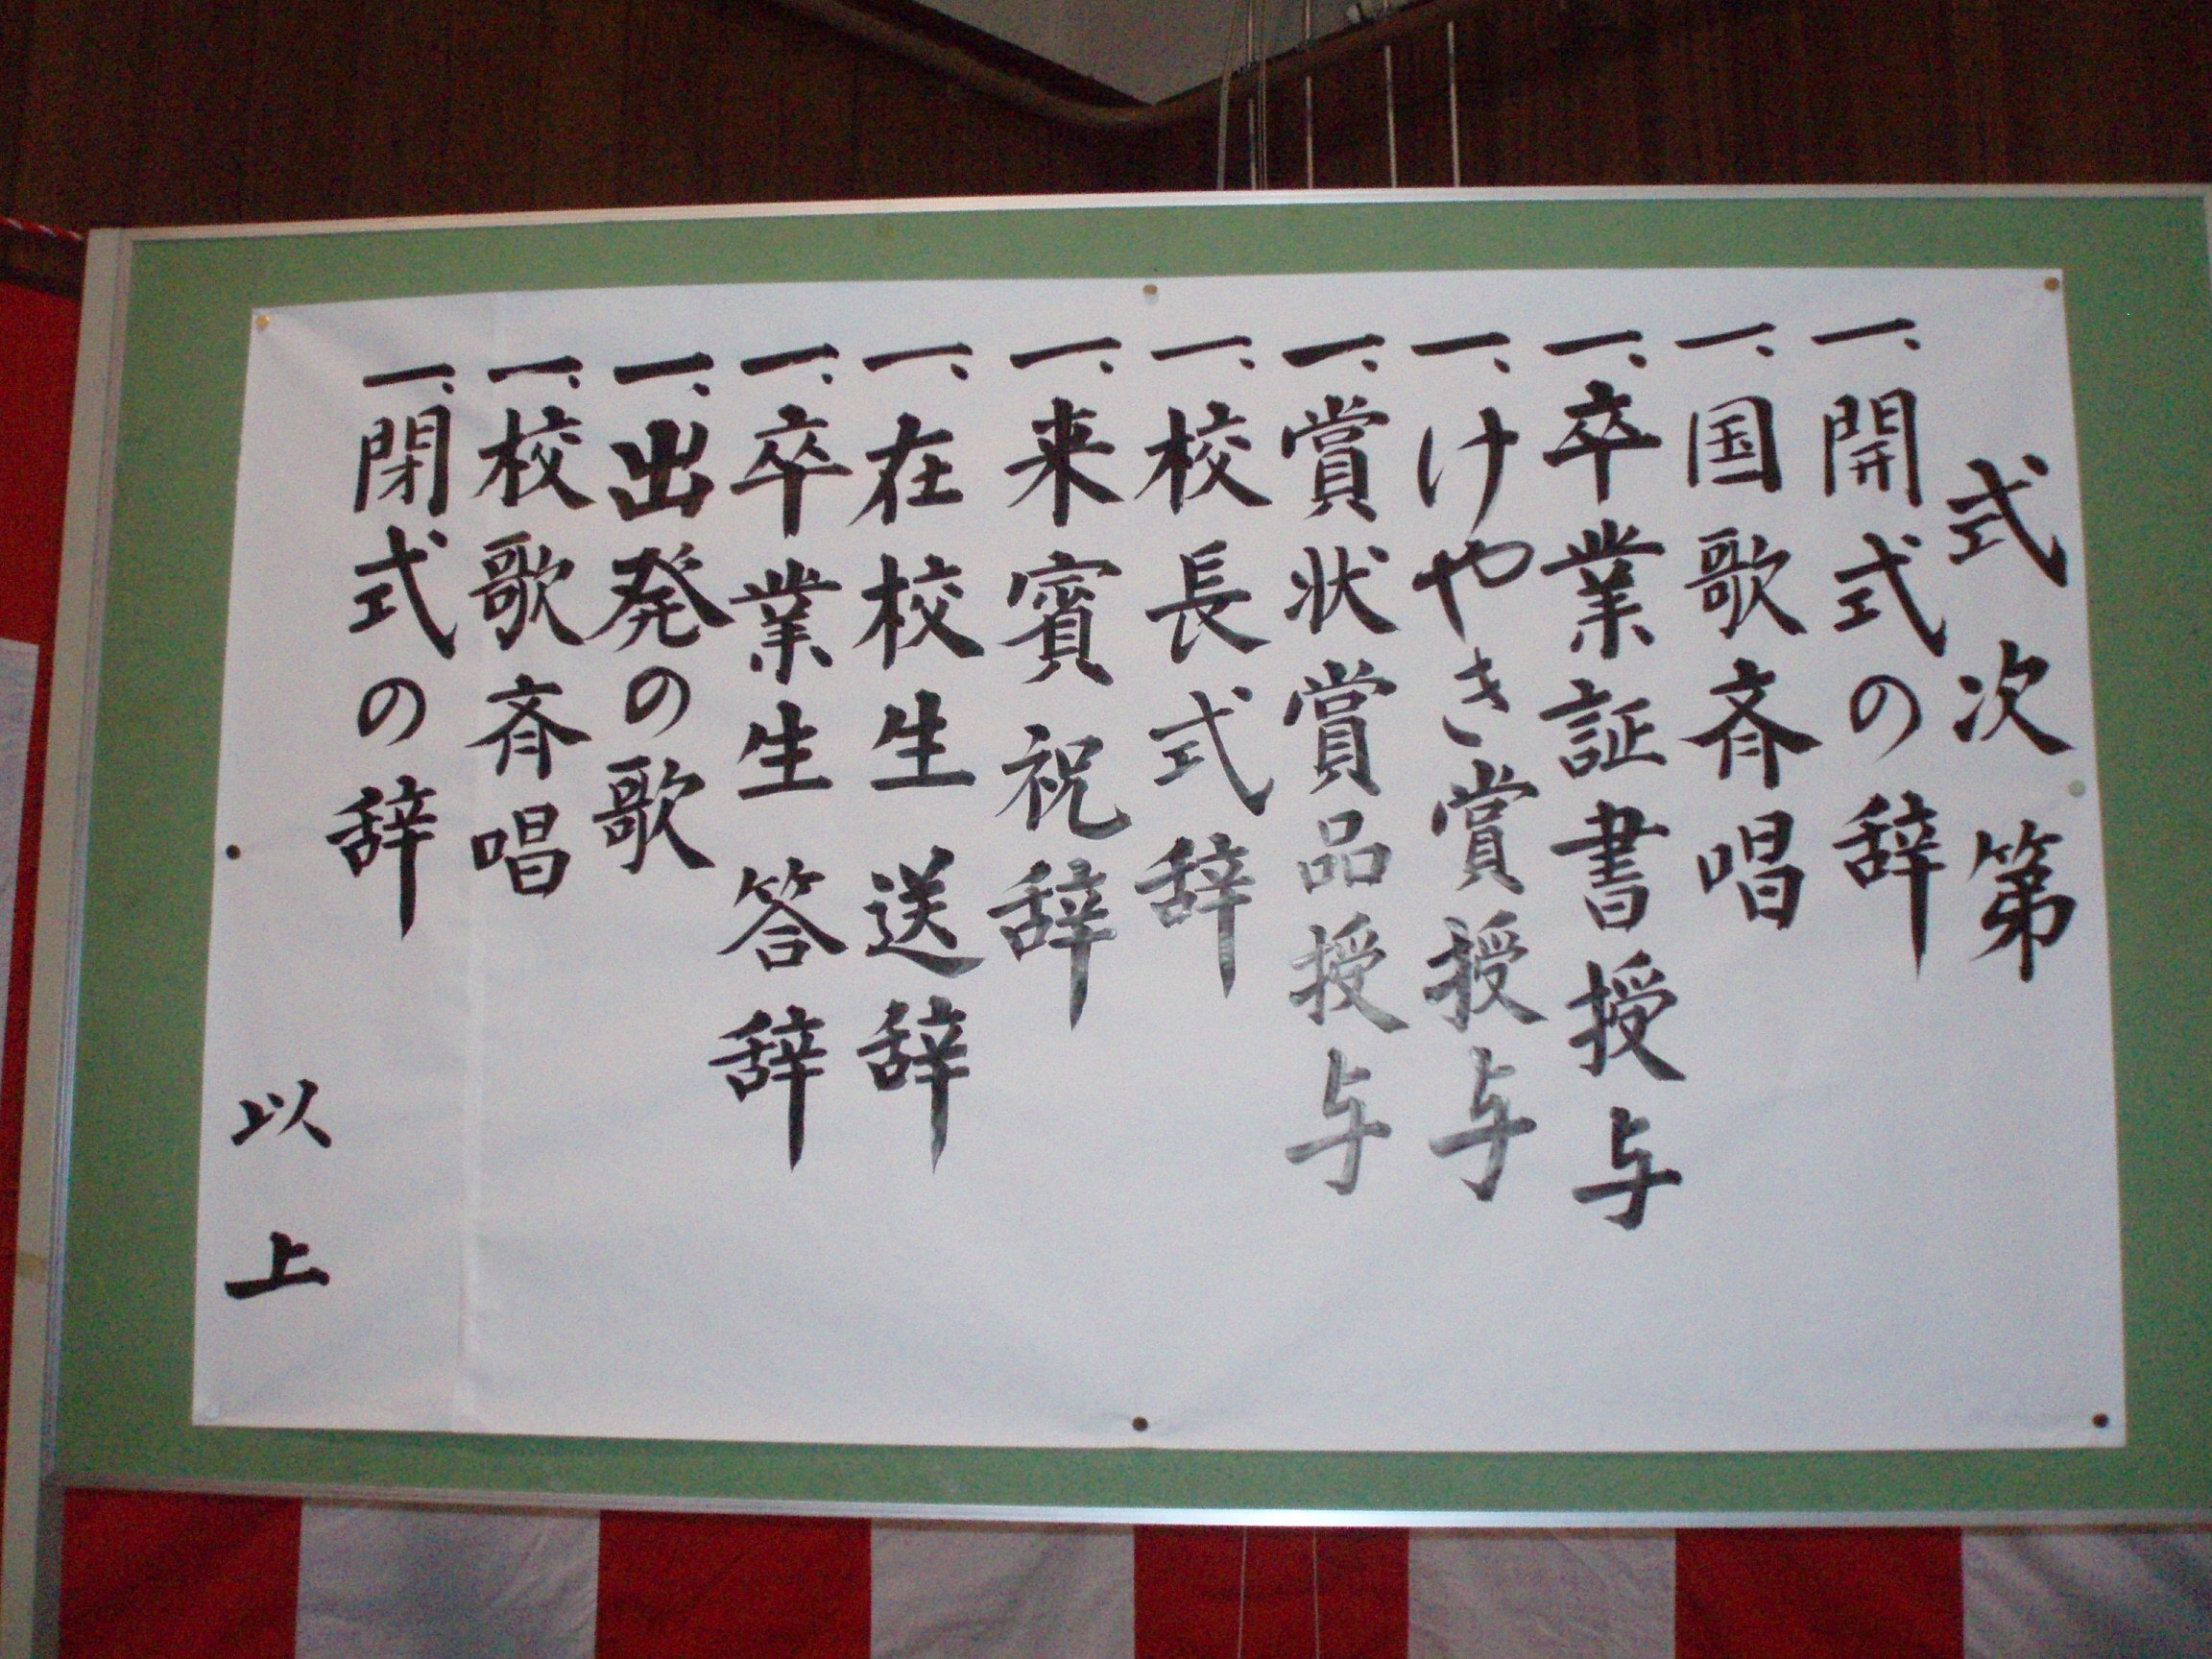 式次第
一、開式の辞
一、国歌斉唱
一、卒業証書授与
一、けやき賞授与
一、賞状賞品授与
一、校長式辞
一、来賓祝辞
一、在校生送辞
一、卒業生答辞
一、出発の歌
一、校歌斉唱
一、閉式の辞
以上